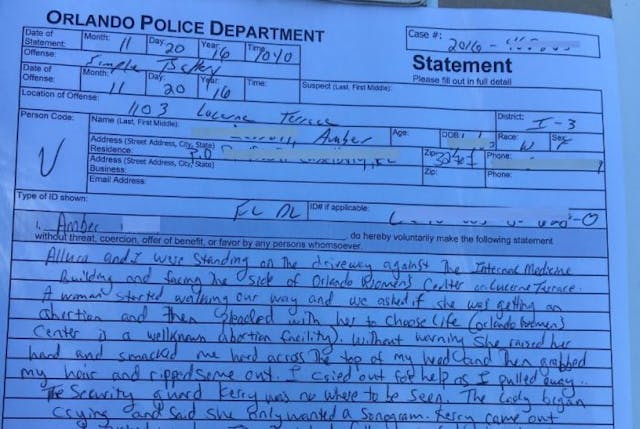 ORLANDO POLICE DEPARTMENT
Case #: 2016-
Statement
Please fill out in full detail
Date of Statement: Month: 11 Day: 20 Year: 16 Time: 1040
Offense: Simple Battery
Date of Offense: Month: 11 Day: 20 Year: 16 Time: Suspect (Last, First Middle):
Location of Offense: 1103 Lucerne Terrace District: I-3
Person Code: V Name (Last, First Middle): Amber Age: DOB: Race: W Sex: F
Address (Street Address, City, State) Residence: P.O Zip: Phone:
Address (Street Address, City, State) Business: Zip: Phone:
Email Address:
Type of ID shown: FL DL ID# if applicable: -0
I, Amber do hereby voluntarily make the following statement
without threat, coercion, offer of benefit, or favor by any persons whomsoever.
Allura and I were standing on the driveway against the Internal Medicine
Building and facing the side of Orlando Women's Center on Lucerne Terrace.
A woman started walking our way and we asked if she was getting an
abortion and then pleaded with her to choose life (orlando women's
Center is a wellknown abortion facility). Without warning she raised her
hand and smacked me hard across the top of my head and then grabbed
my hair and ripped some out. I cried out for help as I pulled away.
The Security guard Kerry was no where to be seen. The lady began
crying and said she only wanted a sonogram. Kerry came out